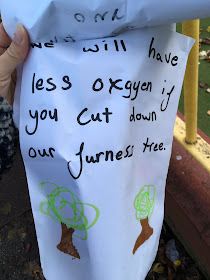 our
we will have
less oxgyen if
you cut down
our furness tree.